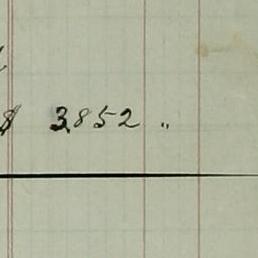 $ 3,852 "